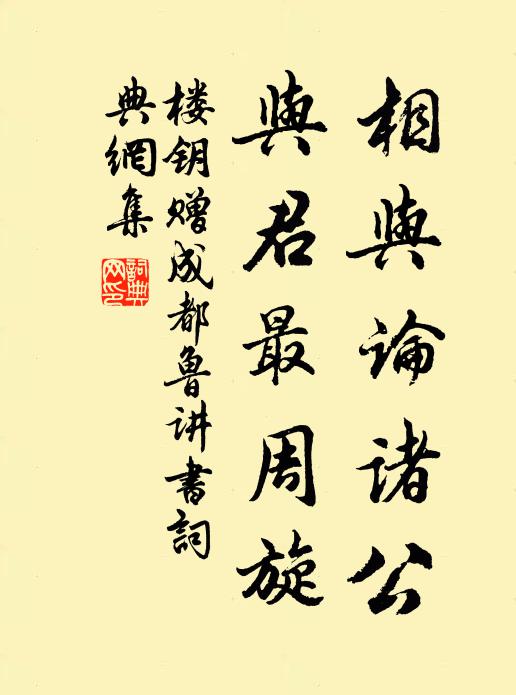 相與論诸公
與君最周旋
楼钥赠成都鲁讲書詞
典網集
詞典
网印